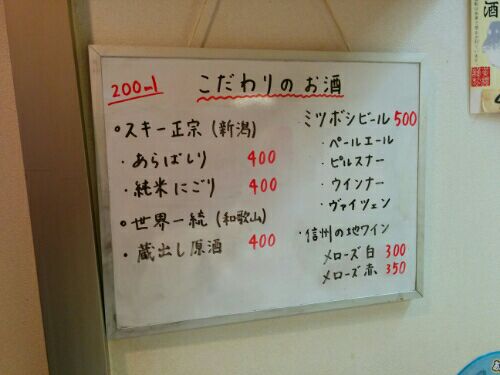 200ml こだわりのお酒
○スキー正宗(新潟)
・あらばしり 400
・純米にごり 400
○世界一統(和歌山)
・蔵出し原酒 400
ミツボシビール 500
・ペールエール
・ピルスナー
・ウインナー
・ヴァイツェン
・信州の地ワイン
メローズ 白 300
メローズ 赤 350
酒